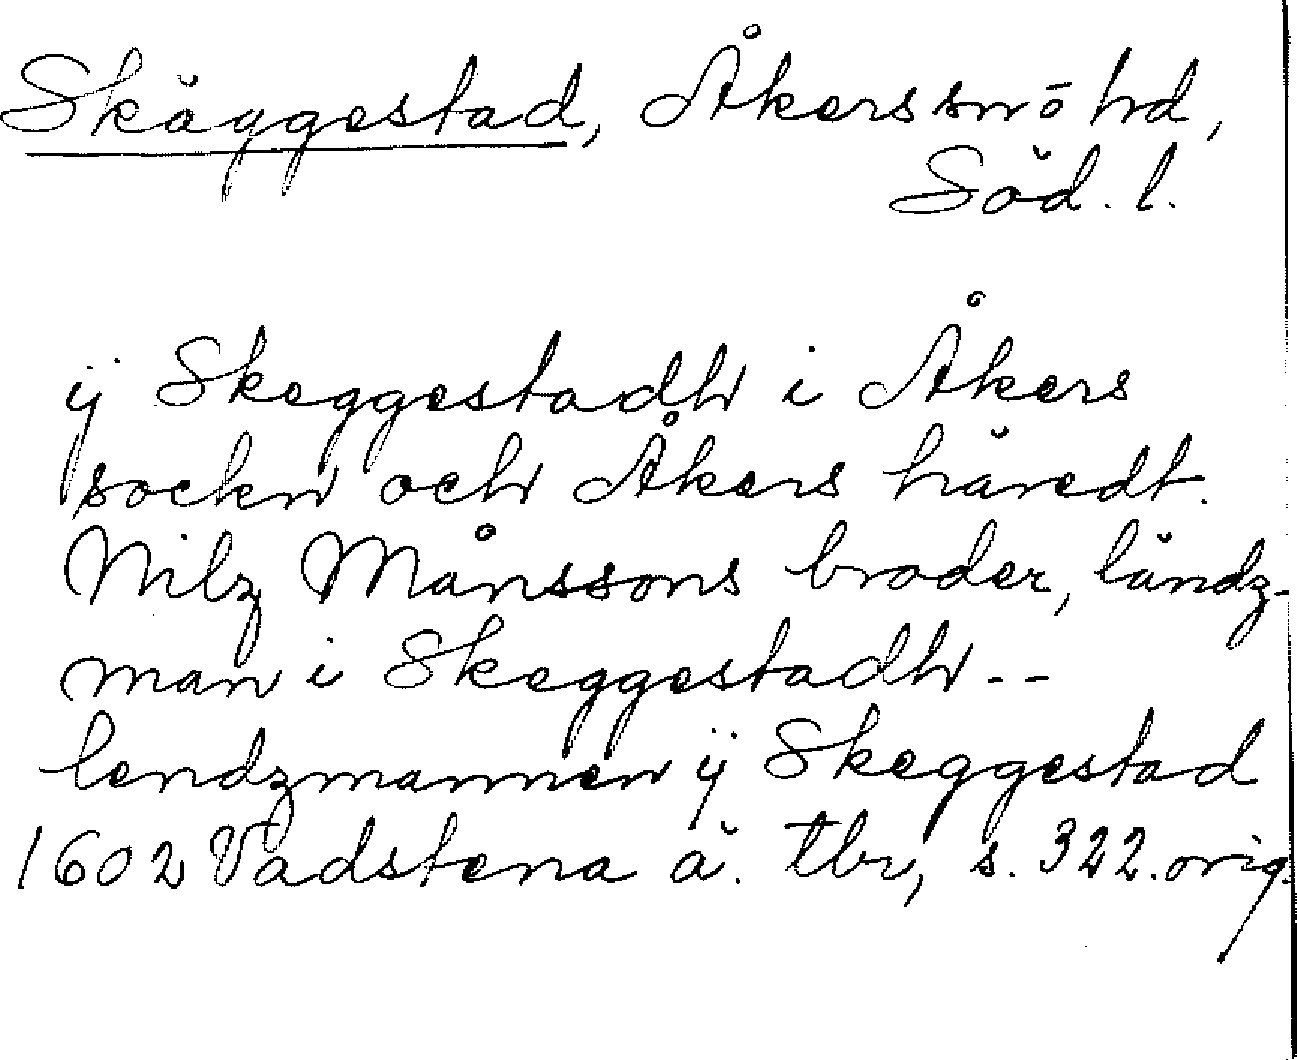 Skäggestad, Åkers sn o hd,
Söd. l.
ÿ Skeggestadh i Åkers
sockn och Åkers häredt.
Nilz Månssons broder, ländz-
man i Skeggestadh --
lendzmannen ÿ Skeggestad
1602 Vadstena ä. tbr, s. 322. orig.